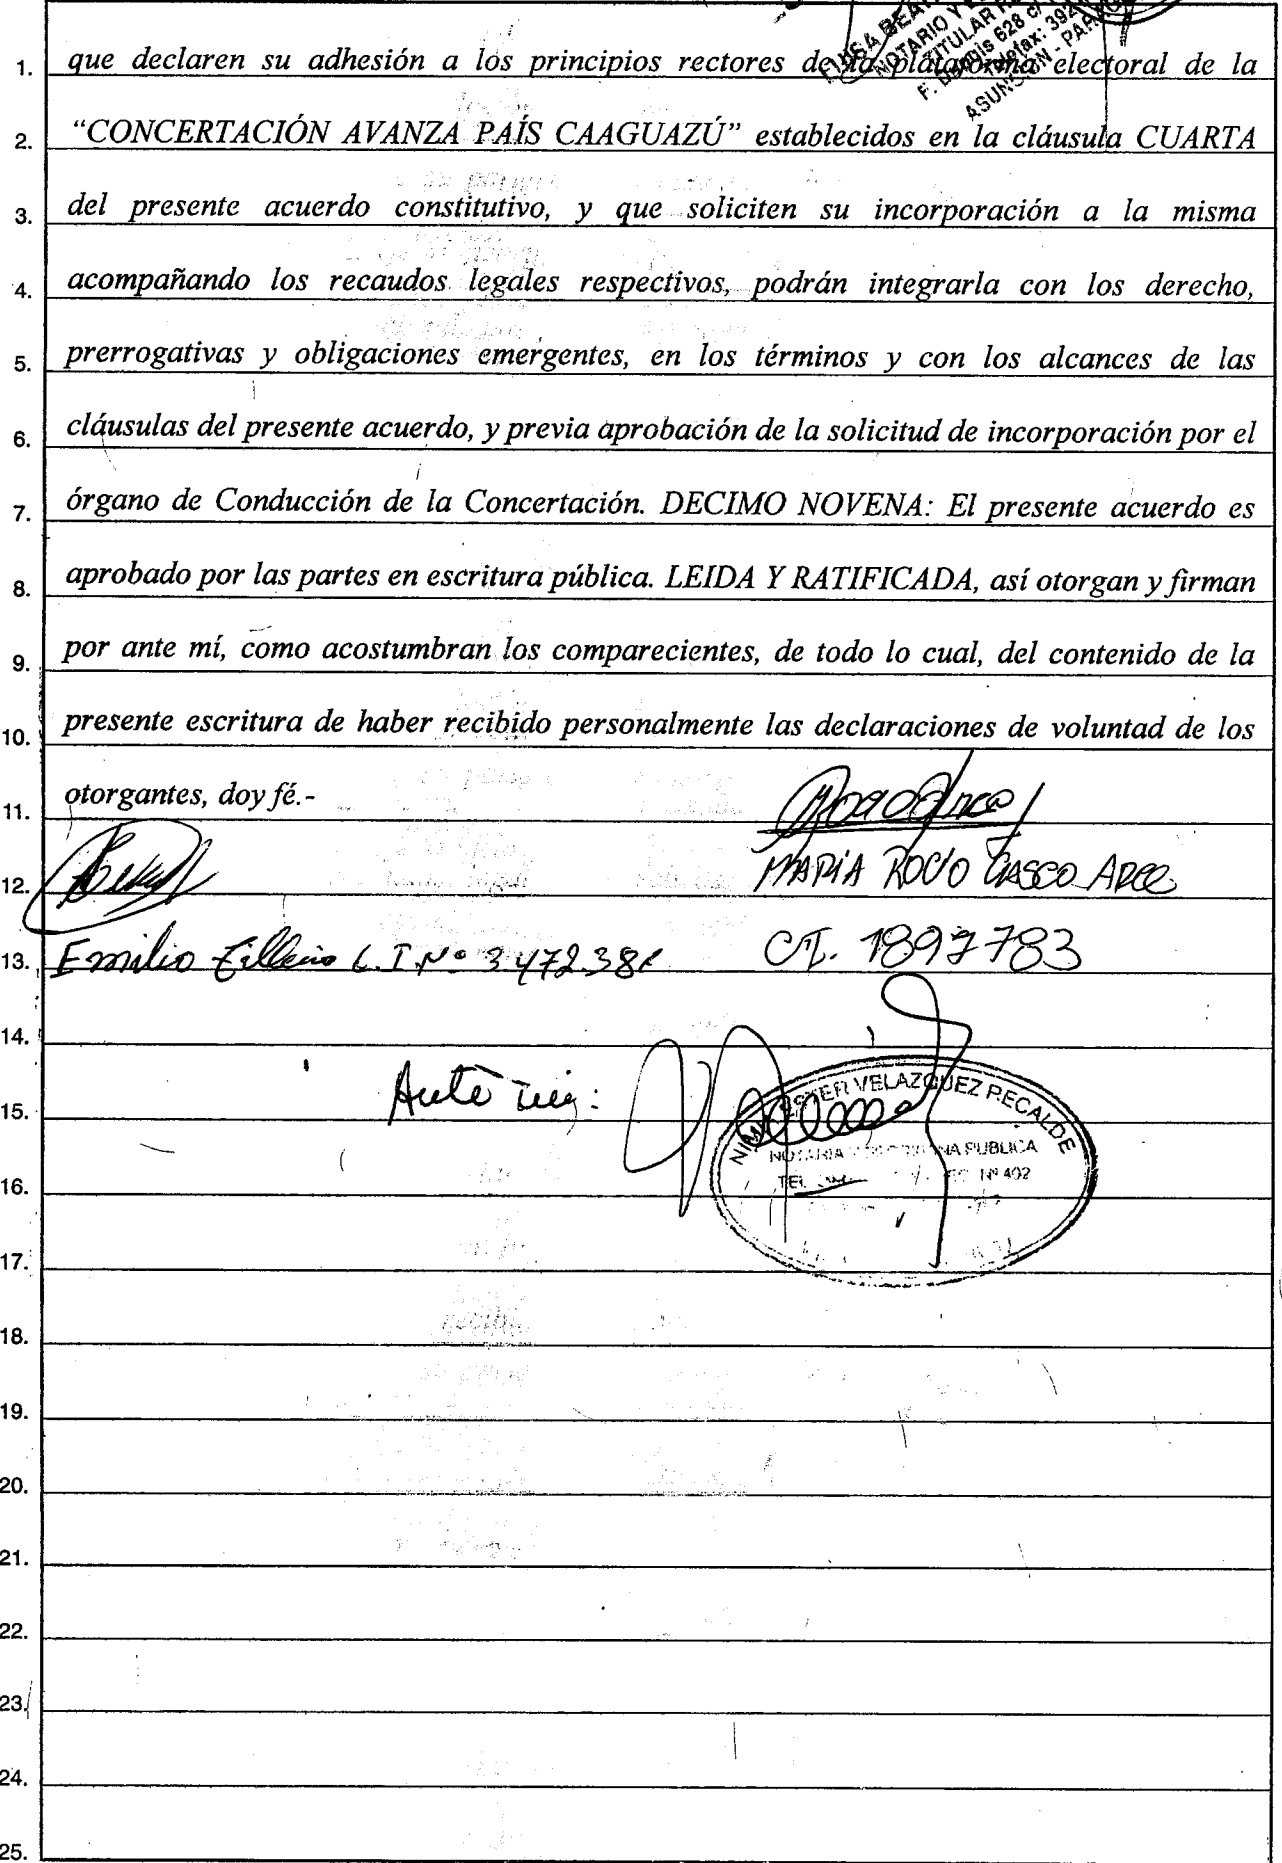 LUISA BEA
NOTARIO Y
TITULAR R
F. 628 c/
Telefax: 392
ASUNCION - PARAG
1. que declaren su adhesión a los principios rectores de la plataforma electoral de la
2. “CONCERTACIÓN AVANZA PAÍS CAAGUAZÚ” establecidos en la cláusula CUARTA
3. del presente acuerdo constitutivo, y que soliciten su incorporación a la misma
4. acompañando los recaudos legales respectivos, podrán integrarla con los derecho,
5. prerrogativas y obligaciones emergentes, en los términos y con los alcances de las
6. cláusulas del presente acuerdo, y previa aprobación de la solicitud de incorporación por el
7. órgano de Conducción de la Concertación. DECIMO NOVENA: El presente acuerdo es
8. aprobado por las partes en escritura pública. LEIDA Y RATIFICADA, así otorgan y firman
9. por ante mí, como acostumbran los comparecientes, de todo lo cual, del contenido de la
10. presente escritura de haber recibido personalmente las declaraciones de voluntad de los
11. otorgantes, doy fé.-
12. MARIA ROCIO GASCO ARCE
13. Emilio C.I.Nº 3.472.38 CI. 1897783
14.
15. Ante mi:
ESTER VELAZQUEZ RECALDE
NOTARIA PUBLICA
16. Nº 402
17.
18.
19.
20.
21.
22.
23.
24.
25.